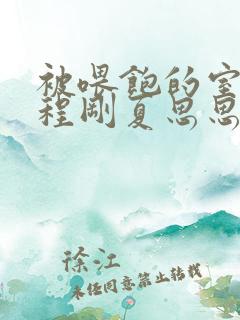 被喂饱的室
程刚夏思思
徐江
未经同意禁止转载